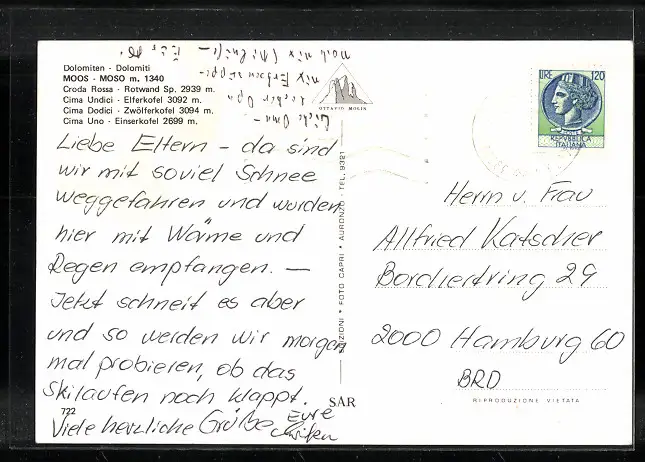 Dolomiten - Dolomiti
MOOS - MOSO m. 1340
Croda Rossa - Rotwand Sp. 2939 m.
Cima Undici - Elferkofel 3092 m.
Cima Dodici - Zwölferkofel 3094 m.
Cima Uno - Einserkofel 2699 m.
Liebe Oma -
lieber Opa
nix
noch nix
Liebe Eltern - da sind
wir mit soviel Schnee
weggefahren und wurden
hier mit Wärme und
Regen empfangen. —
Jetzt schneit es aber
und so werden wir morgen
mal probieren, ob das
Skilaufen noch klappt.
Viele herzliche Grüße Eure
722
OTTAVIO MOLIN
EDIZIONI * FOTO CAPRI * AURONZO - TEL. 9321
SAR
LIRE 120
REPVBBLICA
ITALIANA
Herrn u. Frau
Allfried Katscher
Borchertring 29
2000 Hamburg 60
BRD
RIPRODUZIONE VIETATA